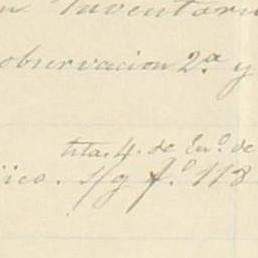 n Inventari
observacion 2.ª y
tita. 4. de En.º de
ico. s/g f.º 118